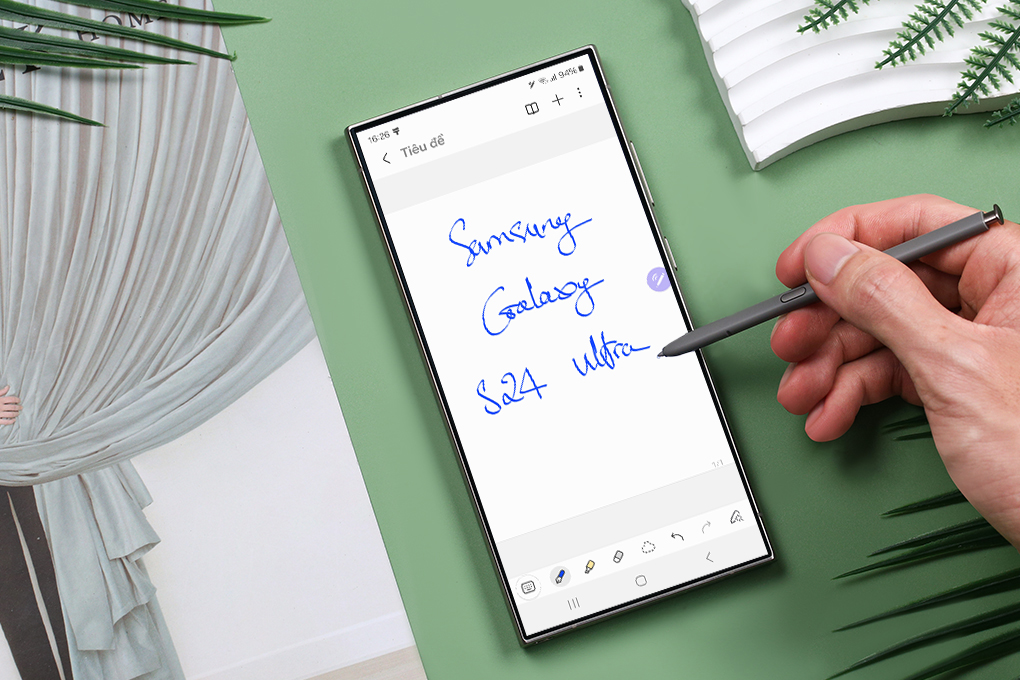 HOME
16:26 94%
Tiêu đề
Samsung
Galaxy
S24 Ultra
1/1